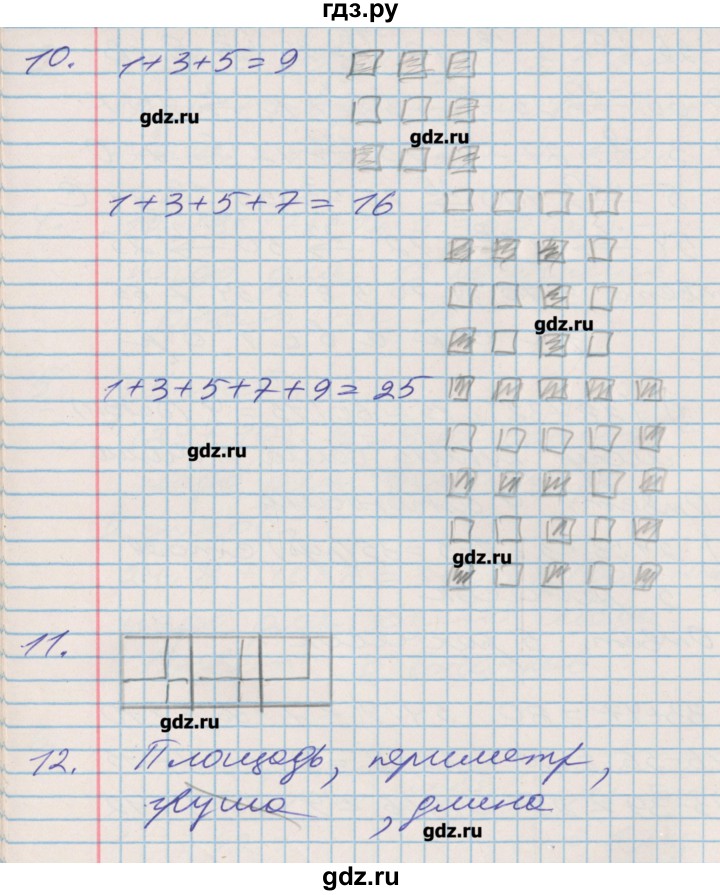 гдз.ру
10. 1+3+5=9
gdz.ru
gdz.ru
1+3+5+7= 16
gdz.ru
1+3+5+7+9= 25
gdz.ru
gdz.ru
11.
gdz.ru
12. Площадь, периметр,
груша, длина
gdz.ru
gdz.ru